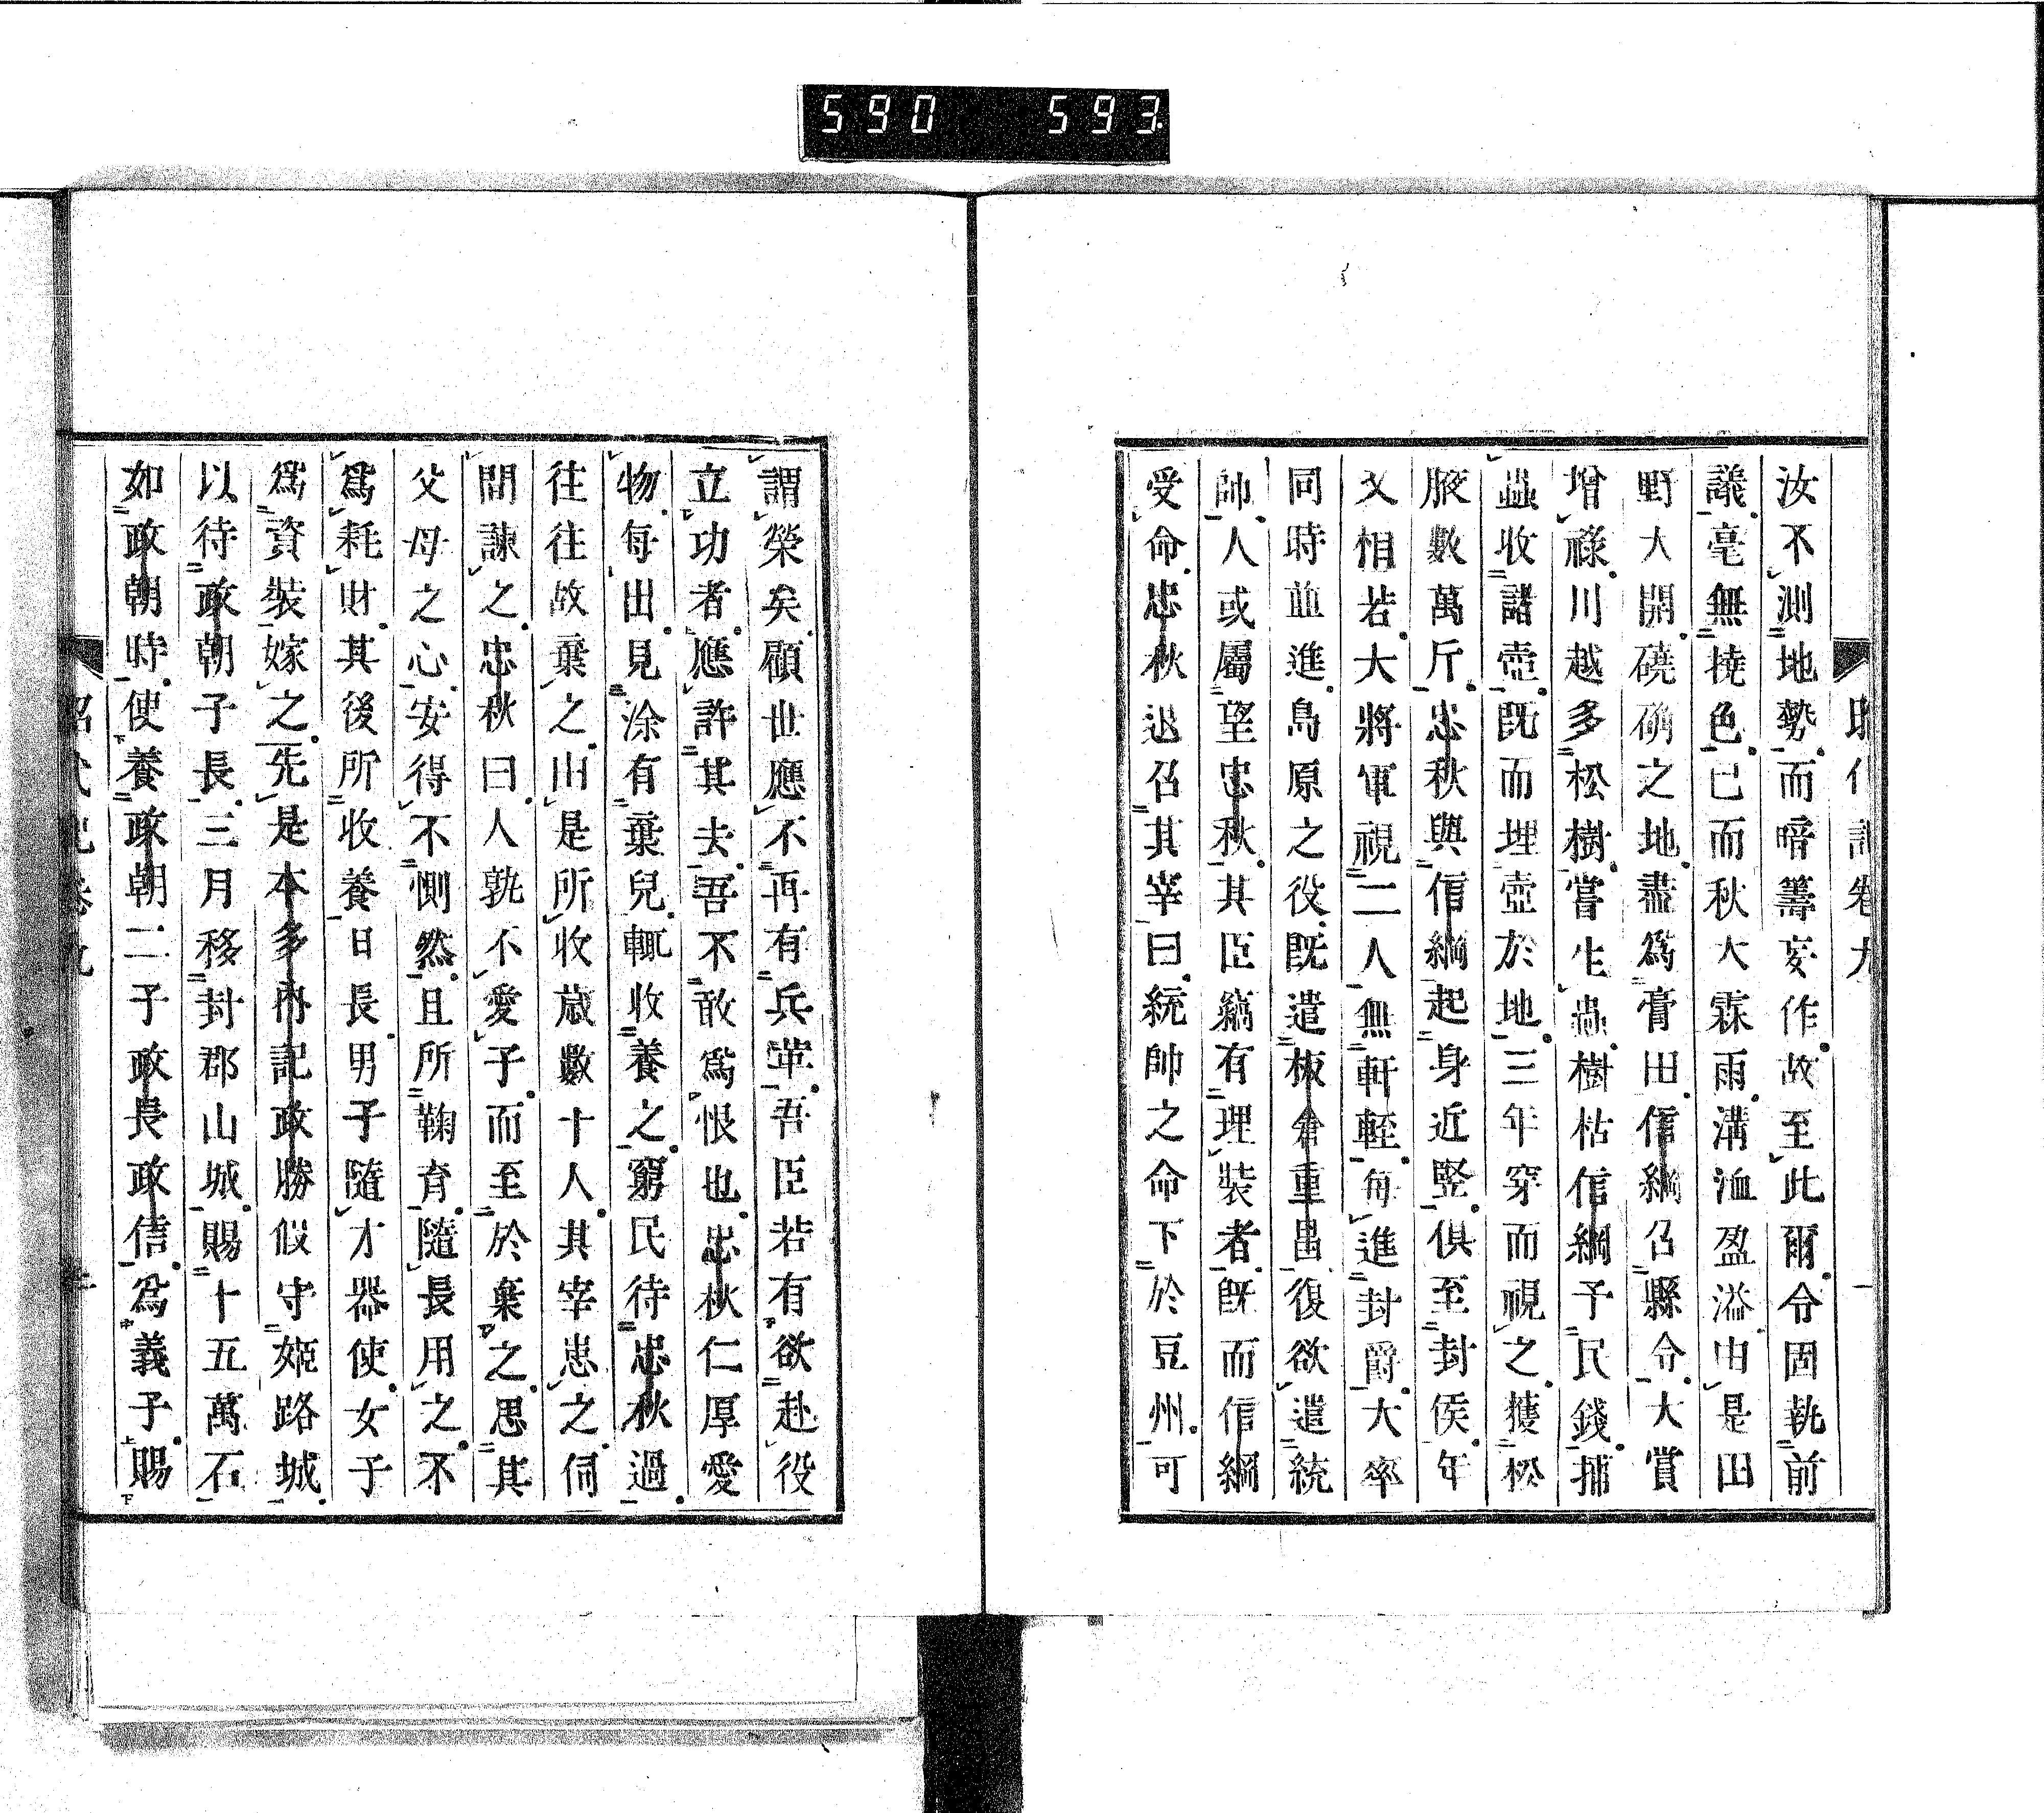 590 593
昭代記卷九
汝不測地勢而暗籌妄作故至此爾令固執前
議毫無撓色已而秋大霖雨溝洫盈溢由是田
野大開磽确之地盡爲膏田信綱召縣令大賞
增祿川越多松樹嘗生蟲樹枯信綱予民錢捕
蟲收諸壺既而埋壺於地三年穿而視之獲松
脓數萬斤忠秋與信綱起身近竪俱至封侯年
又相若大將軍視二人無軒輊每進封爵大率
同時並進島原之役既遣板倉重昌復欲遣統
帥人或屬望忠秋其臣竊有理裝者既而信綱
受命忠秋退召其宰曰統帥之命下於豆州可
謂榮矣顧世應不再有兵革吾臣若有欲赴役
立功者應許其去吾不敢爲恨也忠秋仁厚愛
物每出見涂有棄兒輒收養之窮民待忠秋過
往往故棄之由是所收歲數十人其宰患之伺
間諫之忠秋曰人孰不愛子而至於棄之思其
父母之心安得不惻然且所鞠育隨長用之不
爲耗財其後所收養日長男子隨才器使女子
爲資裝嫁之先是本多內記政勝假守姬路城
以待政朝子長三月移封郡山城賜十五萬石
如政朝時使養政朝二子政長政信爲義子賜
昭代記卷九